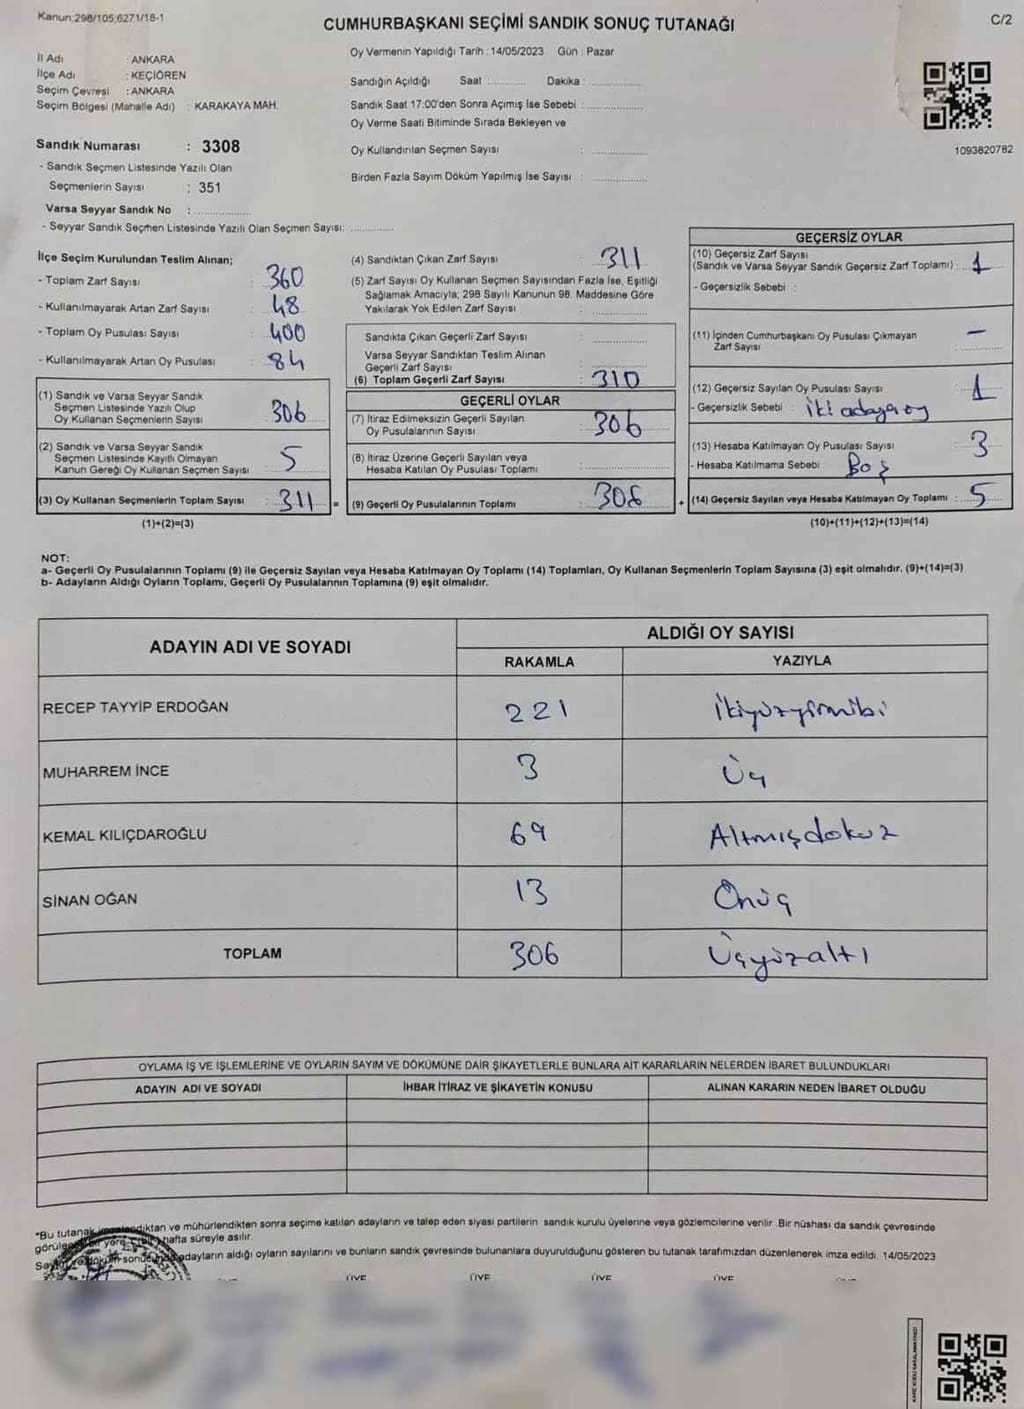 Kanun:298/105,6271/18-1
CUMHURBAŞKANI SEÇİMİ SANDIK SONUÇ TUTANAĞI
C/2
İl Adı : ANKARA
İlçe Adı : KEÇİÖREN
Seçim Çevresi : ANKARA
Seçim Bölgesi (Mahalle Adı) : KARAKAYA MAH.
Sandık Numarası : 3308
- Sandık Seçmen Listesinde Yazılı Olan
Seçmenlerin Sayısı : 351
Varsa Seyyar Sandık No :
- Seyyar Sandık Seçmen Listesinde Yazılı Olan Seçmen Sayısı:
Oy Vermenin Yapıldığı Tarih :14/05/2023 Gün : Pazar
Sandığın Açıldığı Saat Dakika :
Sandık Saat 17:00'den Sonra Açımış İse Sebebi :
Oy Verme Saati Bitiminde Sırada Bekleyen ve
Oy Kullandırılan Seçmen Sayısı :
Birden Fazla Sayım Döküm Yapılmış İse Sayısı :
1093820782
İlçe Seçim Kurulundan Teslim Alınan;
- Toplam Zarf Sayısı : 360
- Kullanılmayarak Artan Zarf Sayısı : 48
- Toplam Oy Pusulası Sayısı : 400
- Kullanılmayarak Artan Oy Pusulası : 84
(1) Sandık ve Varsa Seyyar Sandık
Seçmen Listesinde Yazılı Olup
Oy Kullanan Seçmenlerin Sayısı : 306
(2) Sandık ve Varsa Seyyar Sandık
Seçmen Listesinde Kayıtlı Olmayan
Kanun Gereği Oy Kullanan Seçmen Sayısı : 5
(3) Oy Kullanan Seçmenlerin Toplam Sayısı : 311 =
(1)+(2)=(3)
(4) Sandıktan Çıkan Zarf Sayısı : 311
(5) Zarf Sayısı Oy Kullanan Seçmen Sayısından Fazla İse, Eşitliği
Sağlamak Amacıyla; 298 Sayılı Kanunun 98. Maddesine Göre
Yakılarak Yok Edilen Zarf Sayısı :
Sandıkta Çıkan Geçerli Zarf Sayısı :
Varsa Seyyar Sandıktan Teslim Alınan
Geçerli Zarf Sayısı :
(6) Toplam Geçerli Zarf Sayısı : 310
GEÇERLİ OYLAR
(7) İtiraz Edilmeksizin Geçerli Sayılan
Oy Pusulalarının Sayısı : 306
(8) İtiraz Üzerine Geçerli Sayılan veya
Hesaba Katılan Oy Pusulası Toplamı :
(9) Geçerli Oy Pusulalarının Toplamı : 306 +
GEÇERSİZ OYLAR
(10) Geçersiz Zarf Sayısı
(Sandık ve Varsa Seyyar Sandık Geçersiz Zarf Toplamı) : 1
- Geçersizlik Sebebi :
(11) İçinden Cumhurbaşkanı Oy Pusulası Çıkmayan
Zarf Sayısı : -
(12) Geçersiz Sayılan Oy Pusulası Sayısı : 1
- Geçersizlik Sebebi : İki adaya oy
(13) Hesaba Katılmayan Oy Pusulası Sayısı : 3
- Hesaba Katılmama Sebebi : Boş
(14) Geçersiz Sayılan veya Hesaba Katılmayan Oy Toplamı : 5
(10)+(11)+(12)+(13)=(14)
NOT:
a- Geçerli Oy Pusulalarının Toplamı (9) ile Geçersiz Sayılan veya Hesaba Katılmayan Oy Toplamı (14) Toplamları, Oy Kullanan Seçmenlerin Toplam Sayısına (3) eşit olmalıdır. (9)+(14)=(3)
b- Adayların Aldığı Oyların Toplamı, Geçerli Oy Pusulalarının Toplamına (9) eşit olmalıdır.
ADAYIN ADI VE SOYADI
ALDIĞI OY SAYISI
RAKAMLA YAZIYLA
RECEP TAYYİP ERDOĞAN 221 İkiyüzyirmibi
MUHARREM İNCE 3 Üç
KEMAL KILIÇDAROĞLU 69 Altmışdokuz
SİNAN OĞAN 13 Onüç
TOPLAM 306 Üçyüzaltı
OYLAMA İŞ VE İŞLEMLERİNE VE OYLARIN SAYIM VE DÖKÜMÜNE DAİR ŞİKAYETLERLE BUNLARA AİT KARARLARIN NELERDEN İBARET BULUNDUKLARI
ADAYIN ADI VE SOYADI İHBAR İTİRAZ VE ŞİKAYETİN KONUSU ALINAN KARARIN NEDEN İBARET OLDUĞU
*Bu tutanak imzalandıktan ve mühürlendikten sonra seçime katılan adayların ve talep eden siyasi partilerin sandık kurulu üyelerine veya gözlemcilerine verilir. Bir nüshası da sandık çevresinde
görülen bir yere hafta süreyle asılır.
adayların aldığı oyların sayılarını ve bunların sandık çevresinde bulunanlara duyurulduğunu gösteren bu tutanak tarafımızdan düzenlenerek imza edildi. 14/05/2023
ÜYE ÜYE ÜYE ÜYE